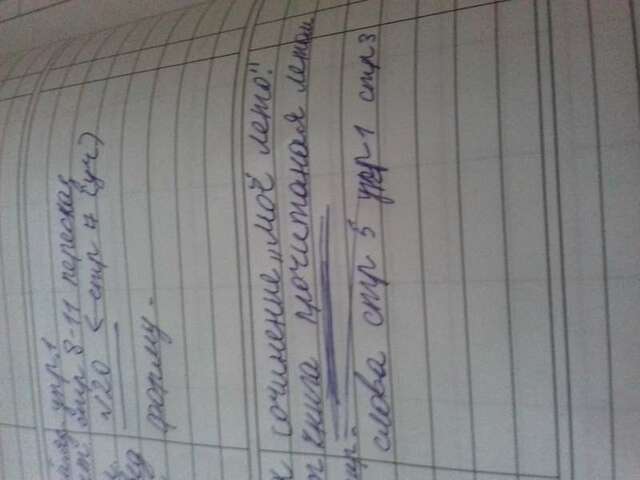 упр 1
стр 8-11 пересказ
№20 (стр 7 (уч)
форму.
сочинение „Моё лето".
книга прочитаная летом
слова стр 5 упр 1 стр 3